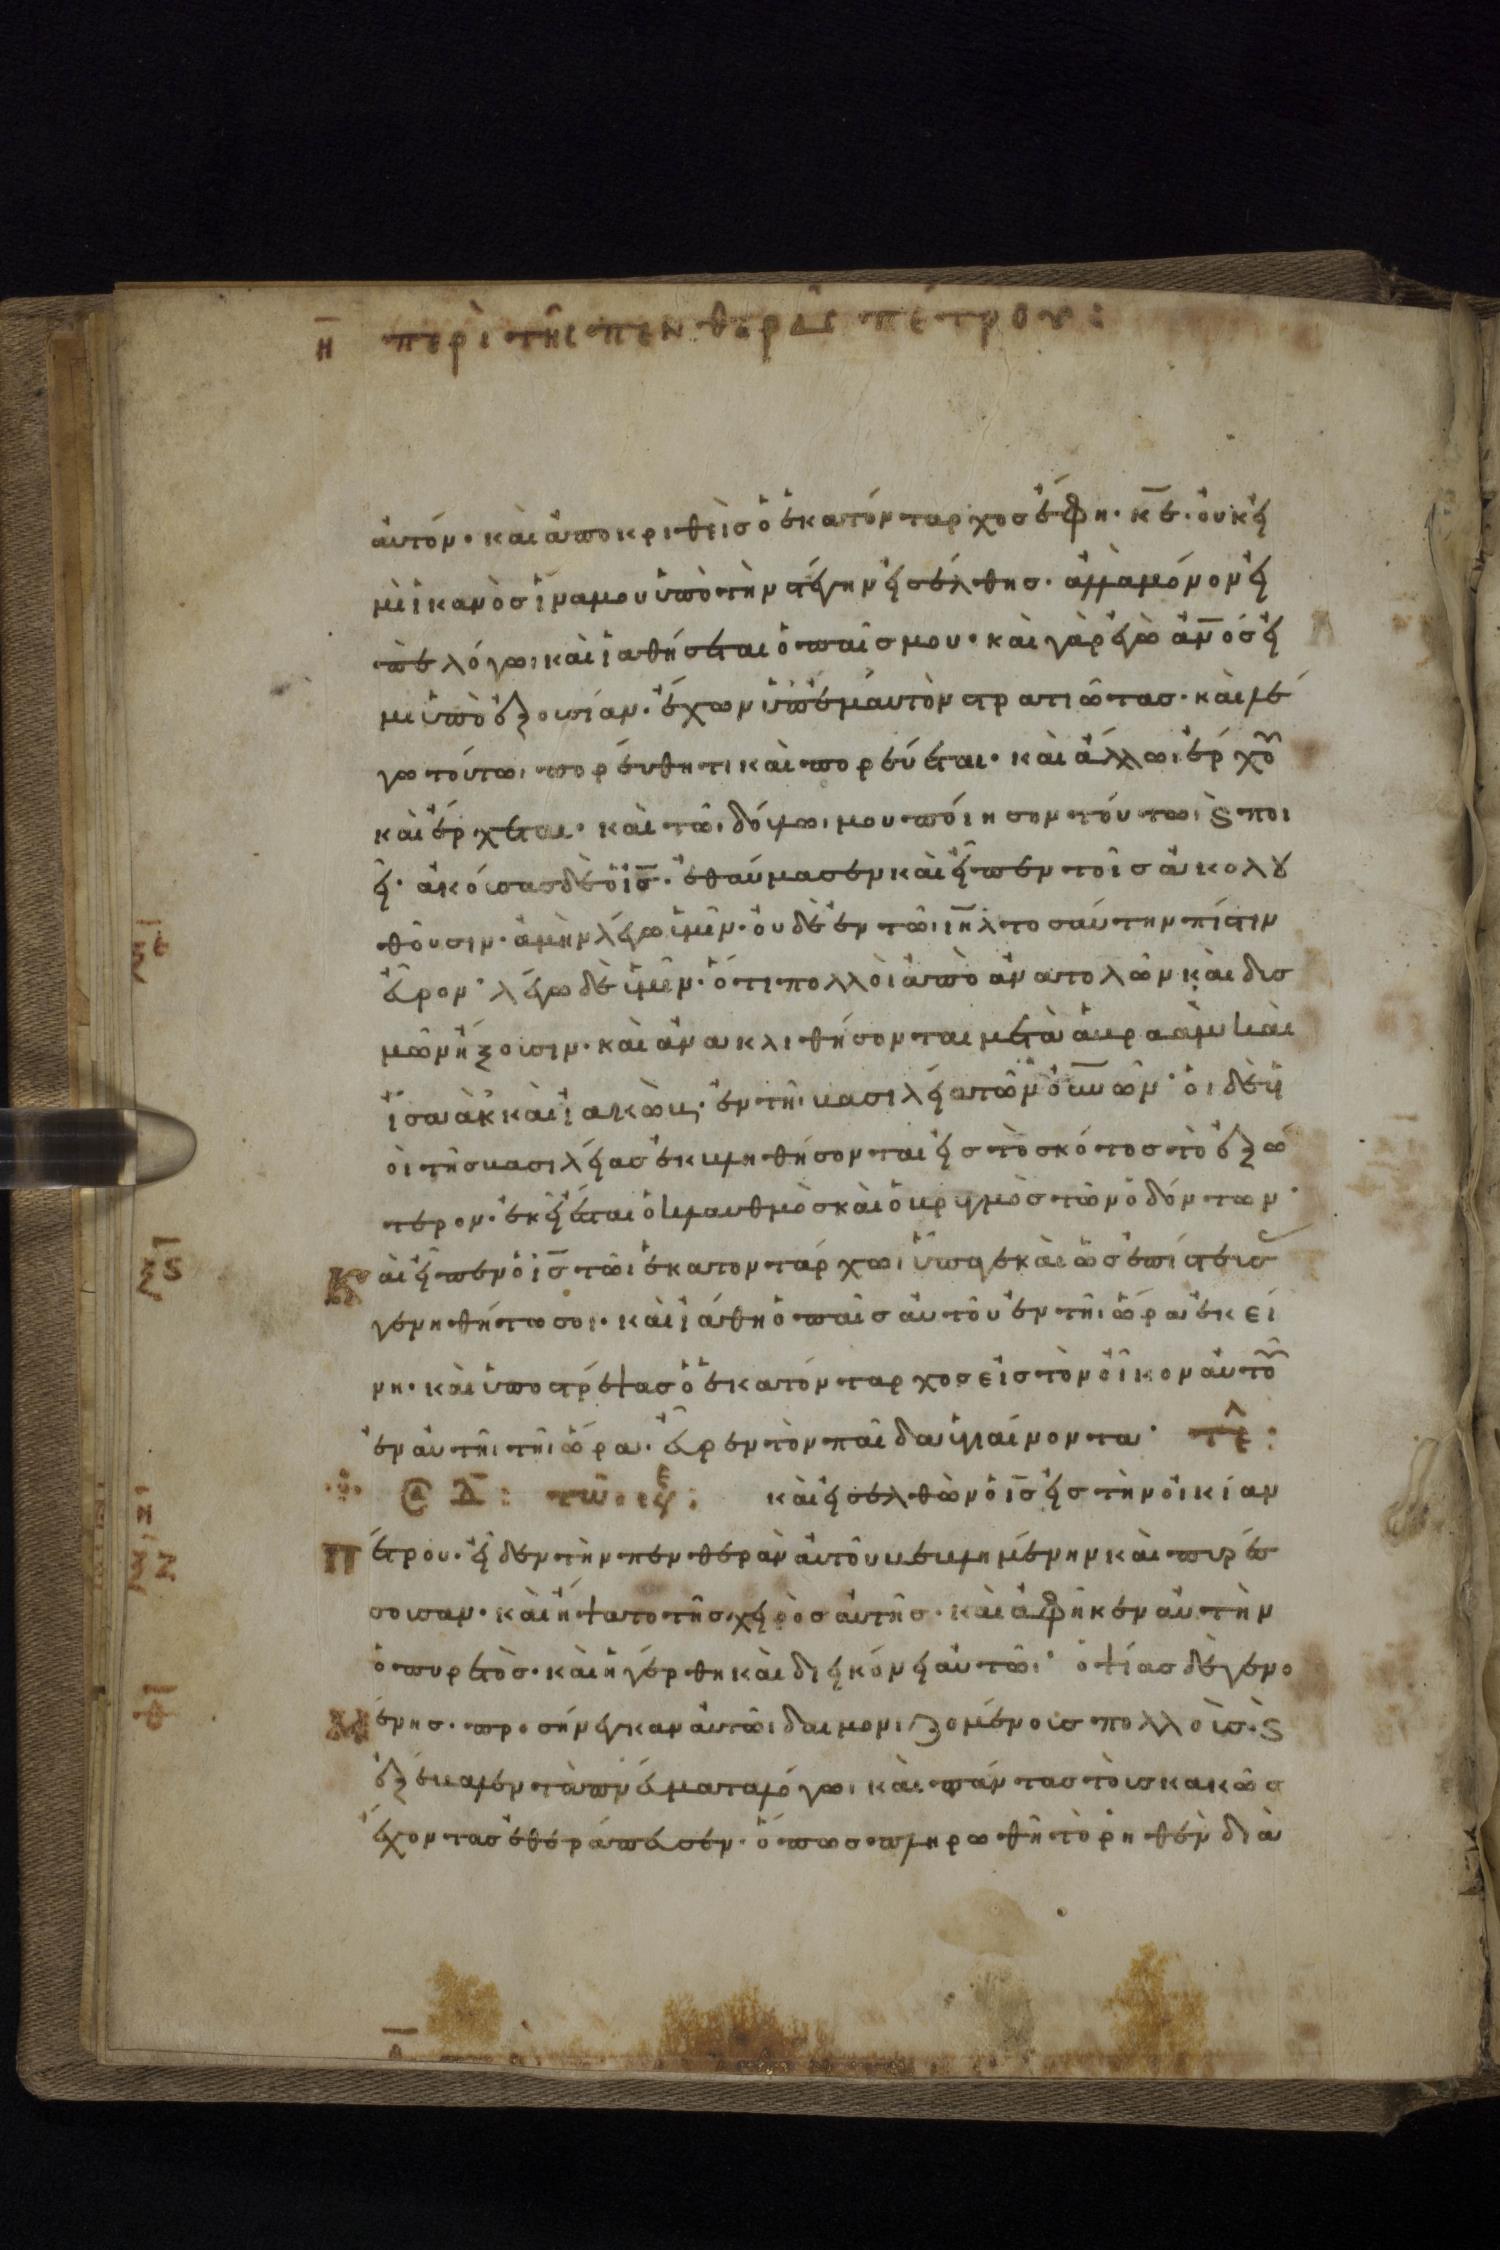 η̅ περὶ τῆς πενθερᾶς πέτρου:
αὐτόν· καὶ ἀποκριθεὶσ ὁ ἑκατόνταρχοσ ἔφη· κ̅ε̅· οὐκ εἰ
μὶ ἱκανὸσ ἵνα μου ὑπὸ τὴν στέγην εἰσέλθησ· ἀλλὰ μόνον εἰ
πὲ λόγωι καὶ ἰαθήσεται ὁ παῖσ μου· καὶ γὰρ ἐγὼ α̅ν̅ο̅σ εἰ
μι ὑπὸ ἐξουσίαν· ἔχων ὑπ' ἐμαυτὸν στρατιώτασ· καὶ λέ
γω τούτωι πορεύθητι καὶ πορεύεται· καὶ ἄλλωι ἔρχου
καὶ ἔρχεται· καὶ τῶι δούλωι μου ποίησον τούτωι ϗ ποι
εῖ· ἀκούσασ δὲ ὁ ι̅σ̅· ἐθαύμασεν καὶ εἶπεν τοῖσ ἀκολου
θοῦσιν· ἀμὴν λέγω ὑμῖν· οὐδὲ ἐν τῶι ι̅η̅λ̅ τοσαύτην πίστιν
εὗρον· λέγω δὲ ὑμῖν· ὅτι πολλοὶ ἀπὸ ἀνατολῶν καὶ δυσ
μῶν ἥξουσιν· καὶ ἀνακλιθήσονται μετὰ ἀβραὰμ καὶ
ἰσαὰκ καὶ ἰακὼβ· ἐν τῆι βασιλείᾳ τῶν ο̅υ̅ν̅ῶν· οἱ δὲ υἱ
οὶ τῆσ βασιλείασ ἐκβληθήσονται εἰσ τὸ σκότοσ τὸ ἐξώ
τερον· ἐκεῖ ἔσται ὁ κλαυθμὸσ καὶ ὁ βρυγμὸσ τῶν ὀδόντων·
Καὶ εἶπεν ὁ ι̅σ̅ τῶι ἑκατοντάρχωι ὕπαγε καὶ ὡσ ἐπίστευσασ
γενηθήτω σοι· καὶ ἰάθη ὁ παῖσ αὐτοῦ ἐν τῆι ὥρα ἐκεί
νη· καὶ ὑποστρέψασ ὁ ἑκατόνταρχοσ εἰσ τὸν οἶκον αὐτοῦ
ἐν αὐτῆι τῆι ὥρα· εὗρεν τὸν παῖδα ὑγιαίνοντα· τε^λ:
καὶ εἰσελθὼν ὁ ι̅σ̅ εἰσ τὴν οἰκίαν
Πέτρου· εἶδεν τὴν πενθερὰν αὐτοῦ βεβλημένην καὶ πυρέσ
σουσαν· καὶ ἥψατο τῆσ χειρὸσ αὐτῆσ· καὶ ἀφῆκεν αὐτὴν
ὁ πυρετὸσ· καὶ ἠγέρθη καὶ διηκόνει αὐτῶι· ὀψίασ δὲ γενο
Μένησ· προσήνεγκαν αὐτῶι δαιμονιζομένουσ πολλοὺσ· ϗ
ἐξέβαλεν τὰ πνεύματα λόγωι καὶ πάντασ τοὺσ κακῶσ
ἔχοντασ ἐθεράπευσεν· ὅπωσ πληρωθῆ τὸ ῥηθὲν διὰ
ξ̅ε̅
ξ̅ϛ̅
ξ̅ζ̅